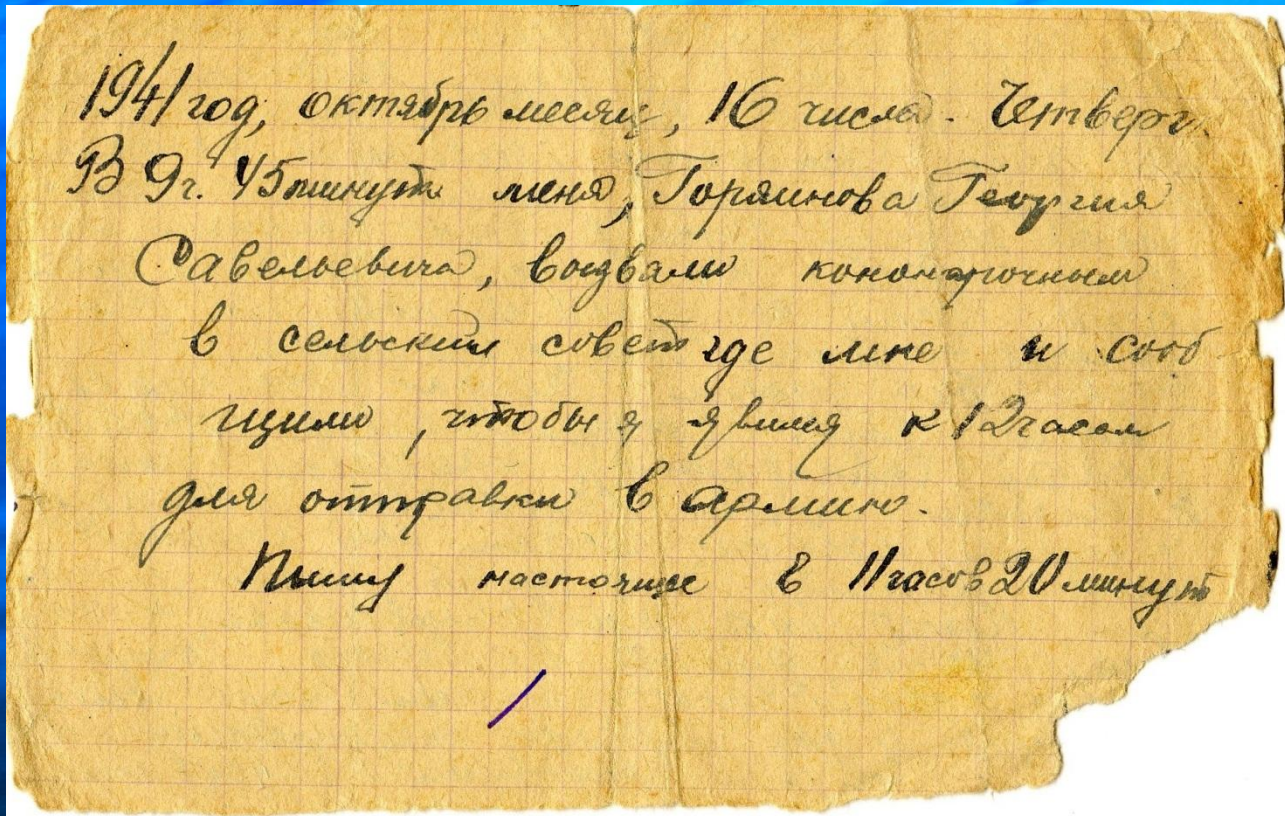 1941 год, октябрь месяц, 16 числа. Четверг.
В 9г. 45 минут меня, Горяинова Георгия
Савельевича, вызвали
в сельский совет где мне и сооб
щили, чтобы я явился к 12 часам
для отправки в армию.
Пишу настоящее в 11 часов 20 минут